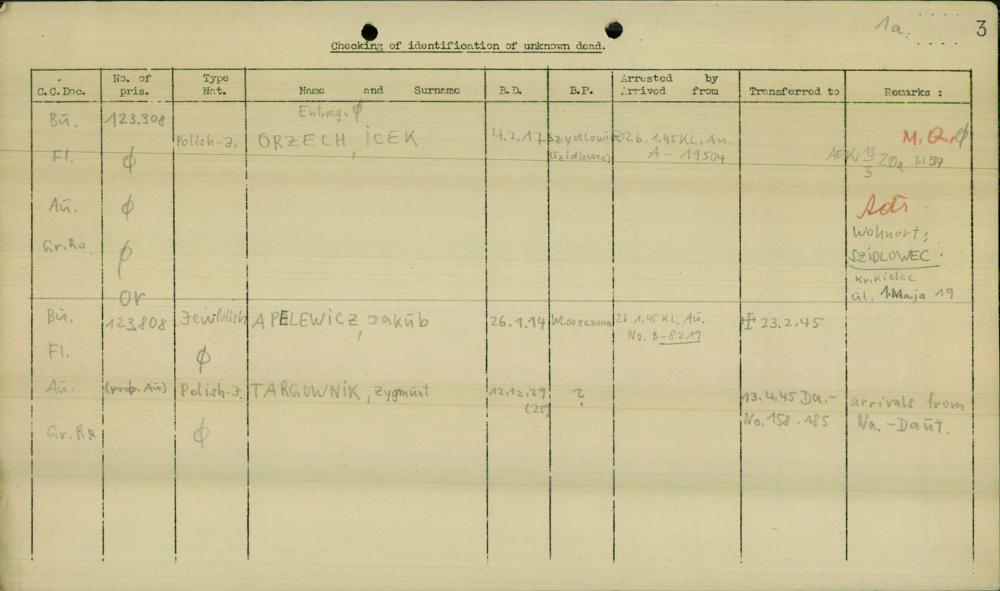 1a.
3
Checking of identification of unknown dead.
C.C.Doc. No. of pris. Type Nat. Name and Surname B.D. B.P. Arrested by Arrived from Transferred to Remarks :
Bu. 123.308 Entreg. ϕ
Polish-J. ORZECH, ICEK 4.2.17 26.1.45 KL. Au. M.Q. ϕ
Fl. ϕ (Szidlowec) A-19504 13/3 20a
Au. ϕ Adr.
Wohnort:
Gr.Ro. ϕ SZIDLOWEC.
Kr. Kielec
or ul. 1. Maja 19
Bu. 123.808 APELEWICZ, Jakub 26.1.14 26.1.45 KL. Au. 23.2.45
No. B-8219
Fl. ϕ
Au. (prob. Au) Polish-J. TARGOWNIK, Zygmunt 12.12.29 ? 13.4.45 Da.- arrivals from
(25) No. 158.185 Na.-Daut.
Gr.Ro ϕ